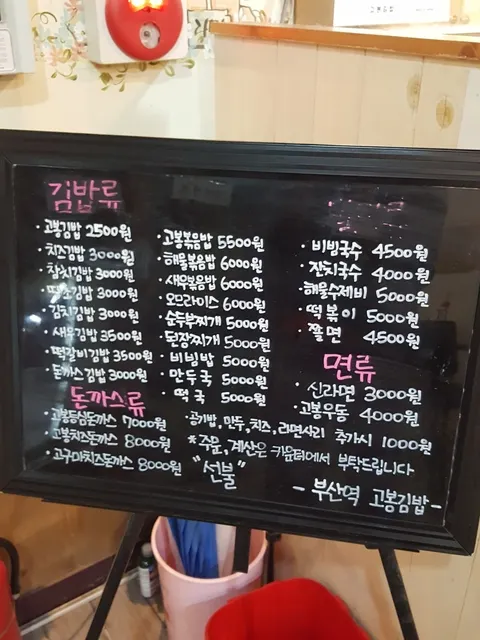 김밥류
· 고봉김밥 2500원
· 치즈김밥 3000원
· 참치김밥 3000원
· 땡초김밥 3000원
· 김치김밥 3000원
· 새우김밥 3500원
· 떡갈비김밥 3500원
· 돈까스김밥 3000원
돈까스류
· 고봉등심돈까스 7000원
· 고봉치즈돈까스 8000원
· 고구마치즈돈까스 8000원
· 고봉볶음밥 5500원
· 해물볶음밥 6000원
· 새우볶음밥 6000원
· 오므라이스 6000원
· 순두부찌개 5000원
· 된장찌개 5000원
· 비빔밥 5000원
· 만두국 5000원
· 떡국 5000원
· 비빔국수 4500원
· 잔치국수 4000원
· 해물수제비 5000원
· 떡볶이 5000원
· 쫄면 4500원
면류
· 신라면 3000원
· 고봉우동 4000원
· 공기밥, 만두, 치즈, 라면사리 추가시 1000원
* 주문, 계산은 카운터에서 부탁드립니다
"선불"
- 부산역 고봉김밥 -